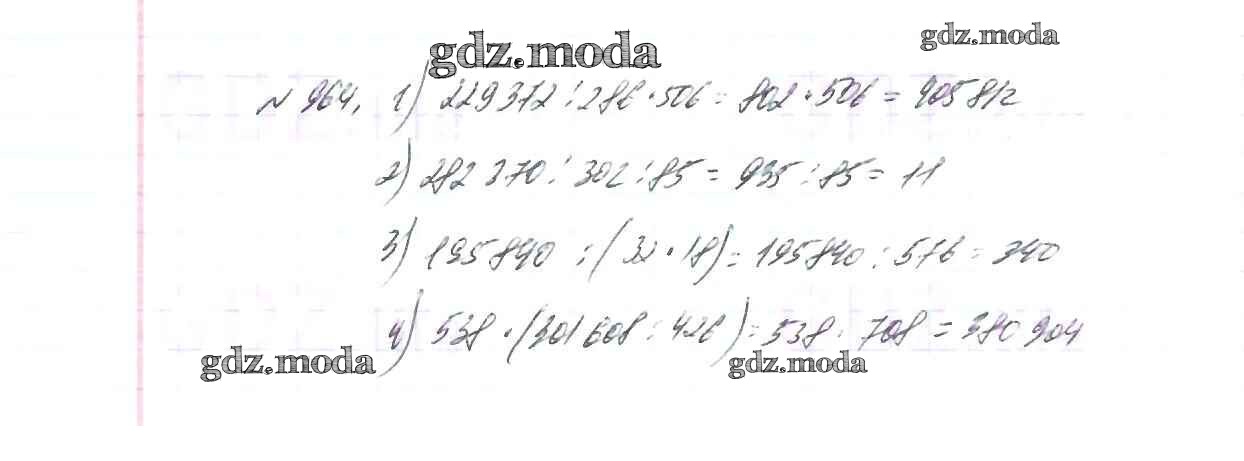 gdz.moda
gdz.moda
№ 964. 1) 229 372 : 286 · 506 = 802 · 506 = 405 812
2) 282 370 : 302 : 85 = 935 : 85 = 11
3) 195 840 : (32 · 18) = 195 840 : 576 = 340
4) 538 · (301 608 : 426) = 538 · 708 = 380 904
gdz.moda
gdz.moda